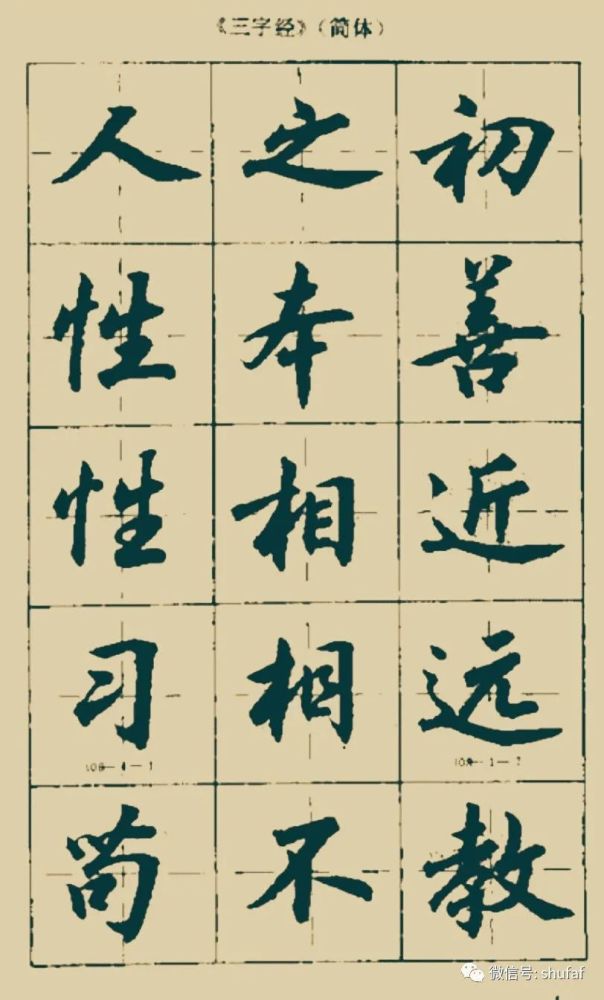 《三字经》(简体)
人之初
性本善
性相近
习相远
苟不教
微信号: shufaf